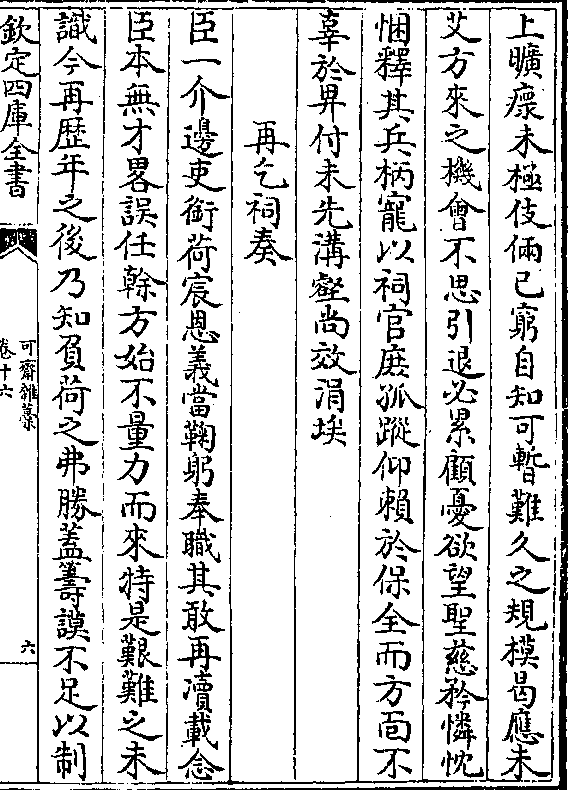 上曠瘝未極伎倆已窮自知可暫難久之規模曷應未
艾方來之機會不思引退必累顧憂欲望聖慈矜憐忱
悃釋其兵柄寵以祠官庶孤蹤仰賴於保全而方面不
辜於畀付未先溝壑尚效涓埃
再乞祠奏
臣一介邊吏銜荷宸恩義當鞠躬奉職其敢再瀆載念
臣本無才畧誤任幹方始不量力而來特是艱難之未
識今再歴年之後乃知負荷之弗勝蓋籌謨不足以制
欽定四庫全書
可齋雜藁
卷十六
六